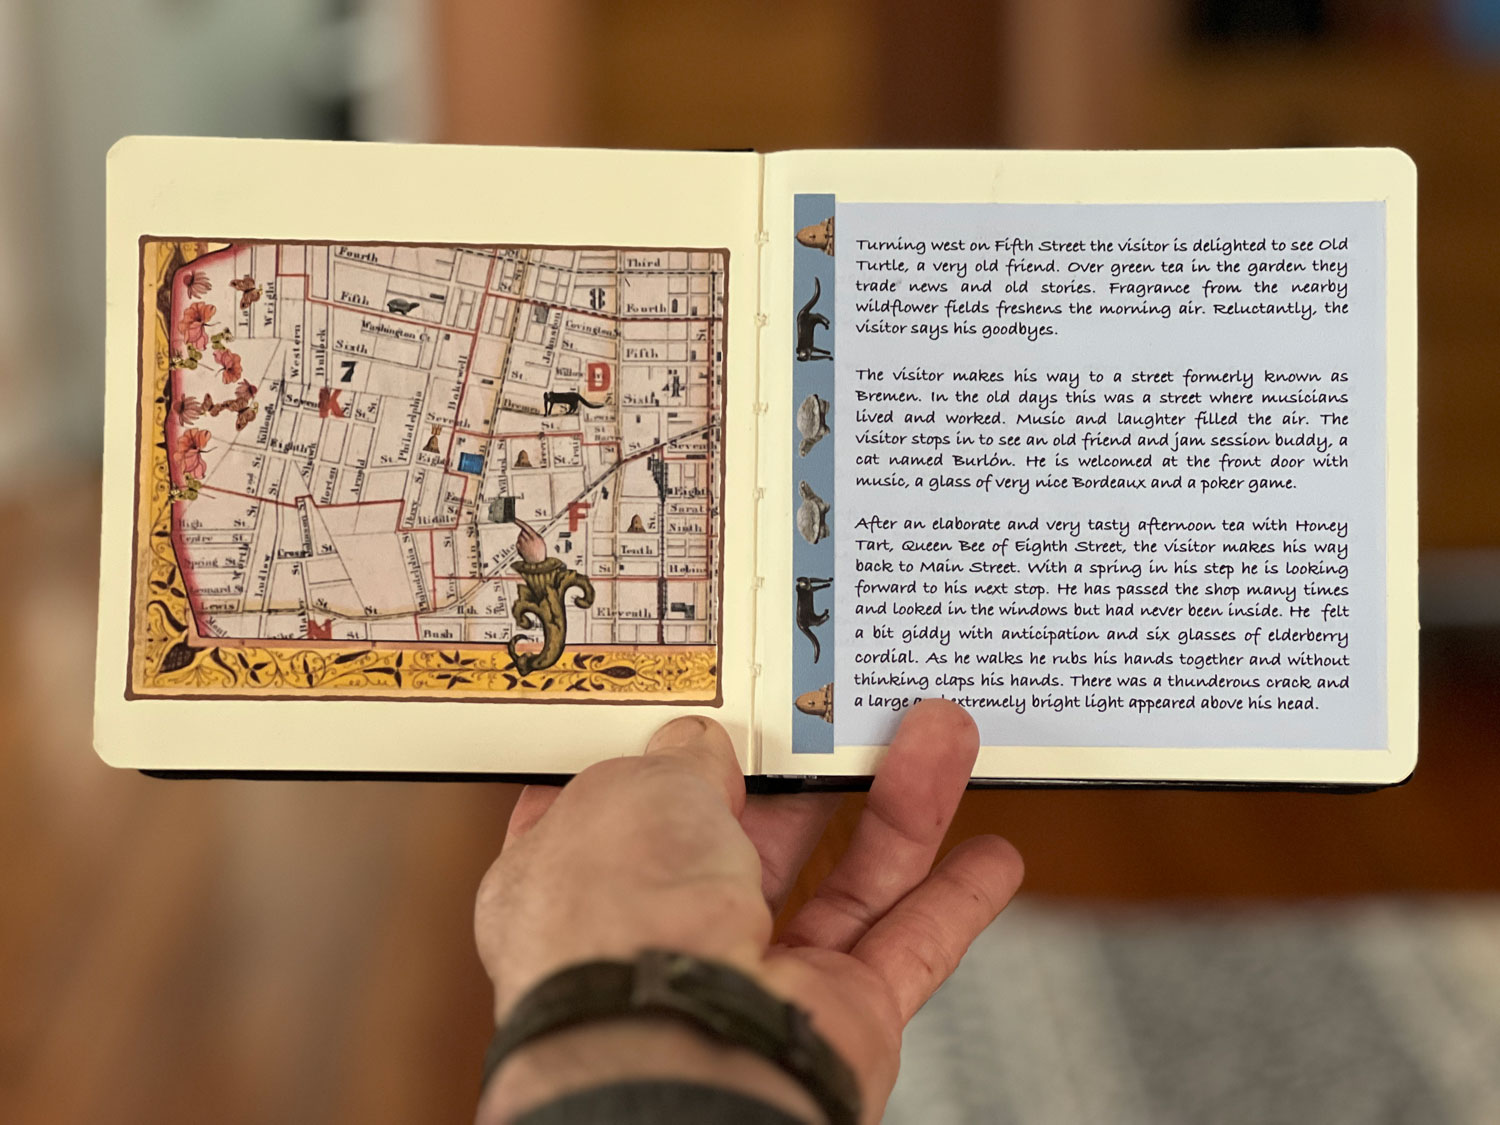 Fourth
Third
Fifth
Fourth
Wright
Washington Ct.
Covington
St.
Johnston
Western
Bullock
Sixth
Fifth
Bakewell
St.
D
7
K
Bremen
Lewis
Sixth
St.
St.
Philadelphia
Seventh
Seventh
Eighth
St.
Eighth
Eight
Sarat
Ninth
F
High St.
Riddle
St.
Centre St.
Main St.
Pike
Tenth
Spring St.
Ludlow
Philadelphia
York
Leonard St.
Lewis
St.
Eleventh
Baker
St.
Bush
St.
St.
Turning west on Fifth Street the visitor is delighted to see Old
Turtle, a very old friend. Over green tea in the garden they
trade news and old stories. Fragrance from the nearby
wildflower fields freshens the morning air. Reluctantly, the
visitor says his goodbyes.
The visitor makes his way to a street formerly known as
Bremen. In the old days this was a street where musicians
lived and worked. Music and laughter filled the air. The
visitor stops in to see an old friend and jam session buddy, a
cat named Burlón. He is welcomed at the front door with
music, a glass of very nice Bordeaux and a poker game.
After an elaborate and very tasty afternoon tea with Honey
Tart, Queen Bee of Eighth Street, the visitor makes his way
back to Main Street. With a spring in his step he is looking
forward to his next stop. He has passed the shop many times
and looked in the windows but had never been inside. He felt
a bit giddy with anticipation and six glasses of elderberry
cordial. As he walks he rubs his hands together and without
thinking claps his hands. There was a thunderous crack and
a large extremely bright light appeared above his head.